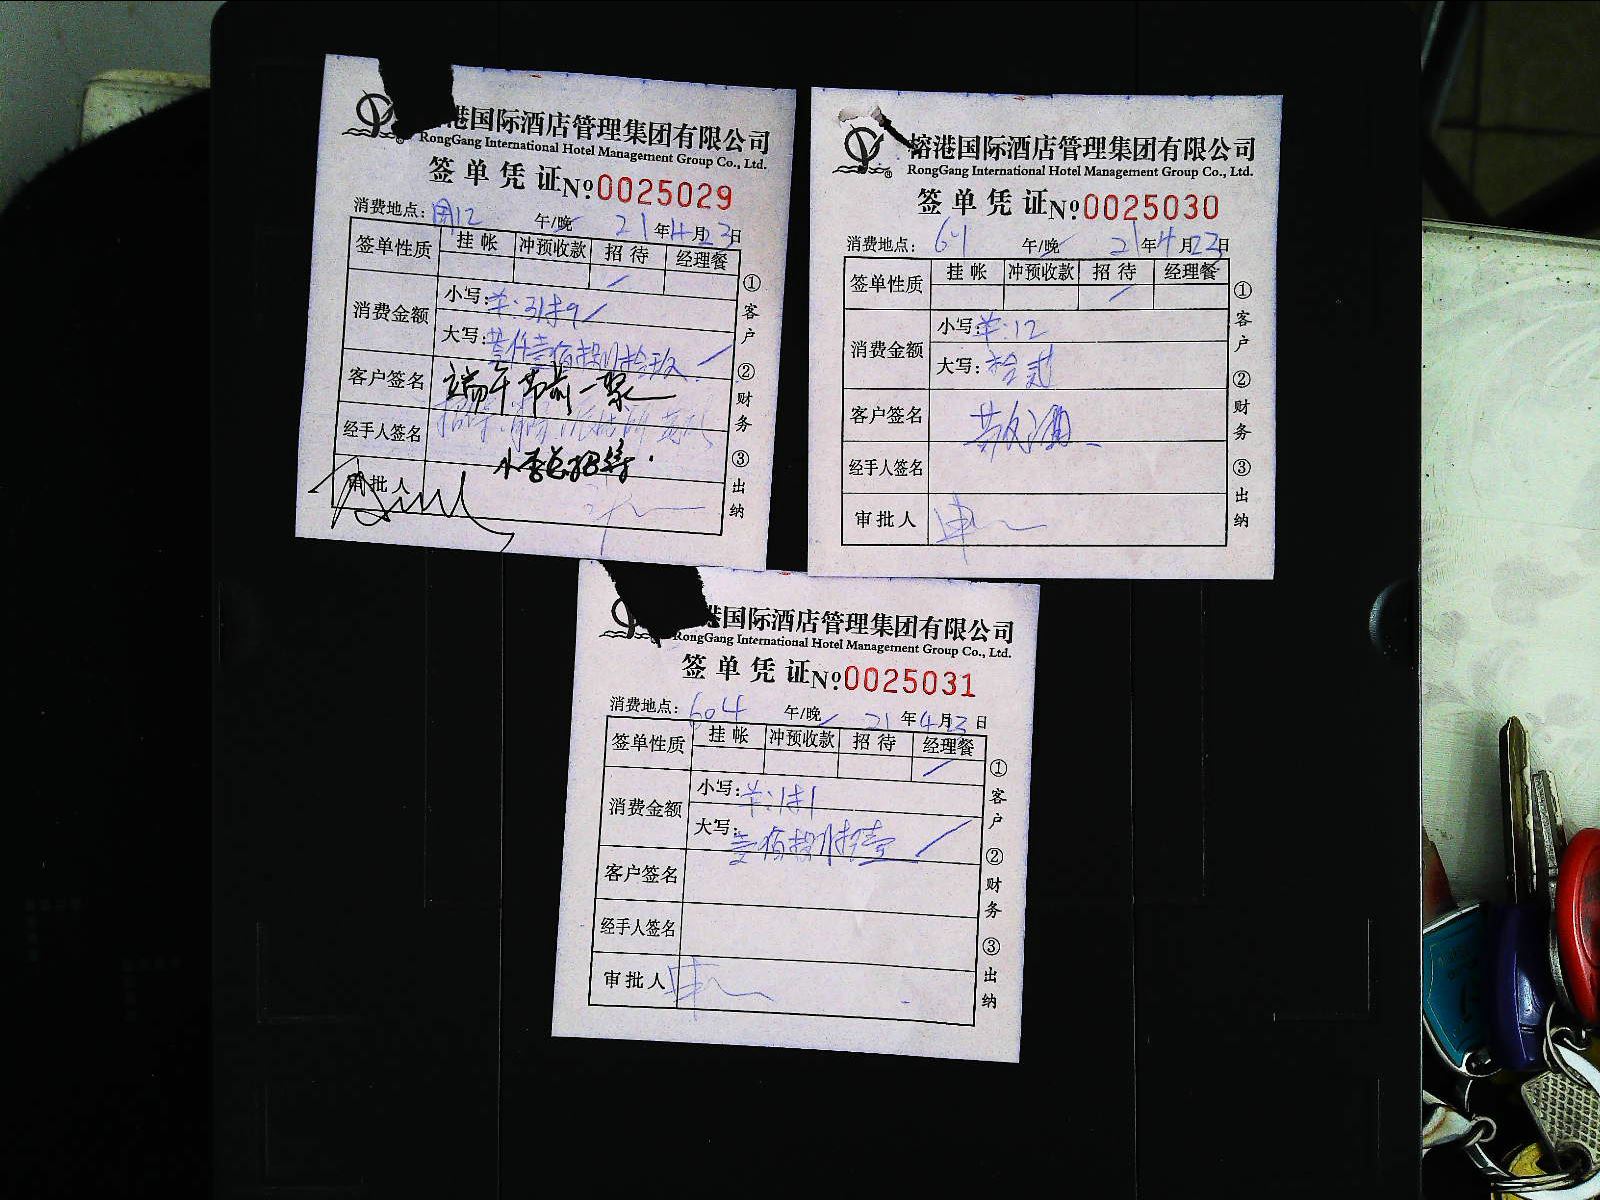 港国际酒店管理集团有限公司
RongGang International Hotel Management Group Co., Ltd.
签单凭证 №0025029
消费地点: 午/晚 21年4月23日
签单性质 挂帐 冲预收款 招待 经理餐
消费金额 小写:
大写:
客户签名 端午节前一聚
经手人签名
审批人
①客户 ②财务 ③出纳
榕港国际酒店管理集团有限公司
RongGang International Hotel Management Group Co., Ltd.
签单凭证 №0025030
消费地点: 午/晚 21年4月23日
签单性质 挂帐 冲预收款 招待 经理餐
消费金额 小写: 12
大写: 拾贰
客户签名 敬酒
经手人签名
审批人
①客户 ②财务 ③出纳
港国际酒店管理集团有限公司
RongGang International Hotel Management Group Co., Ltd.
签单凭证 №0025031
消费地点: 604 午/晚 21年4月23日
签单性质 挂帐 冲预收款 招待 经理餐
消费金额 小写: 181
大写: 壹佰捌拾壹
客户签名
经手人签名
审批人
①客户 ②财务 ③出纳